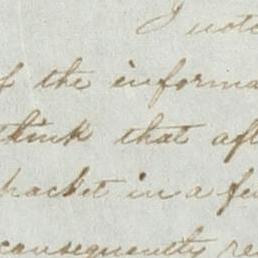 I note
of the informa
think that aft
packet in a fe
consequently re